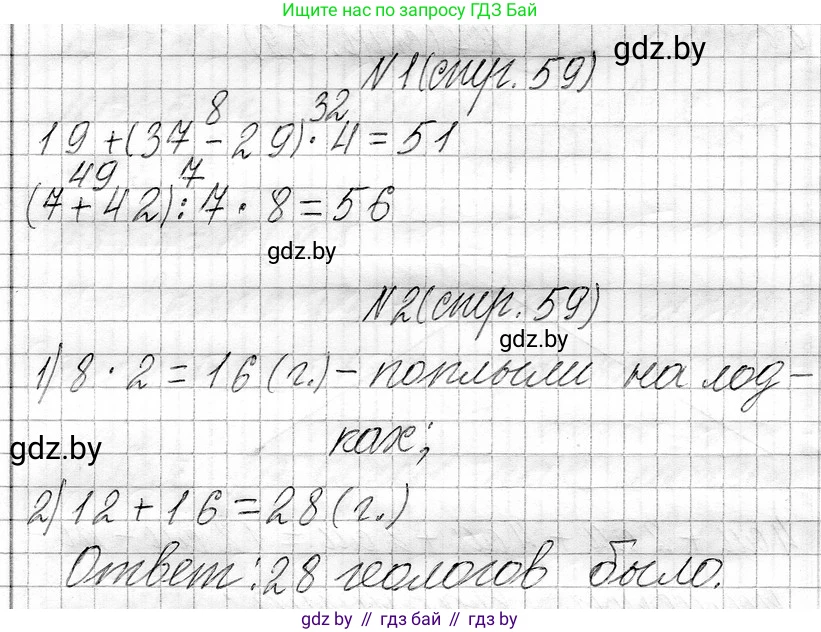 Ищите нас по запросу ГДЗ Бай
gdz.by
№1(стр. 59)
8 32
19+(37-29)·4=51
49 7
(7+42):7·8=56
gdz.by
№2(стр. 59)
gdz.by
1) 8·2=16(г.)- поплыли на лод-
gdz.by
ках;
2) 12+16=28(г.)
Ответ: 28 геологов было.
gdz.by // гдз бай // gdz.by